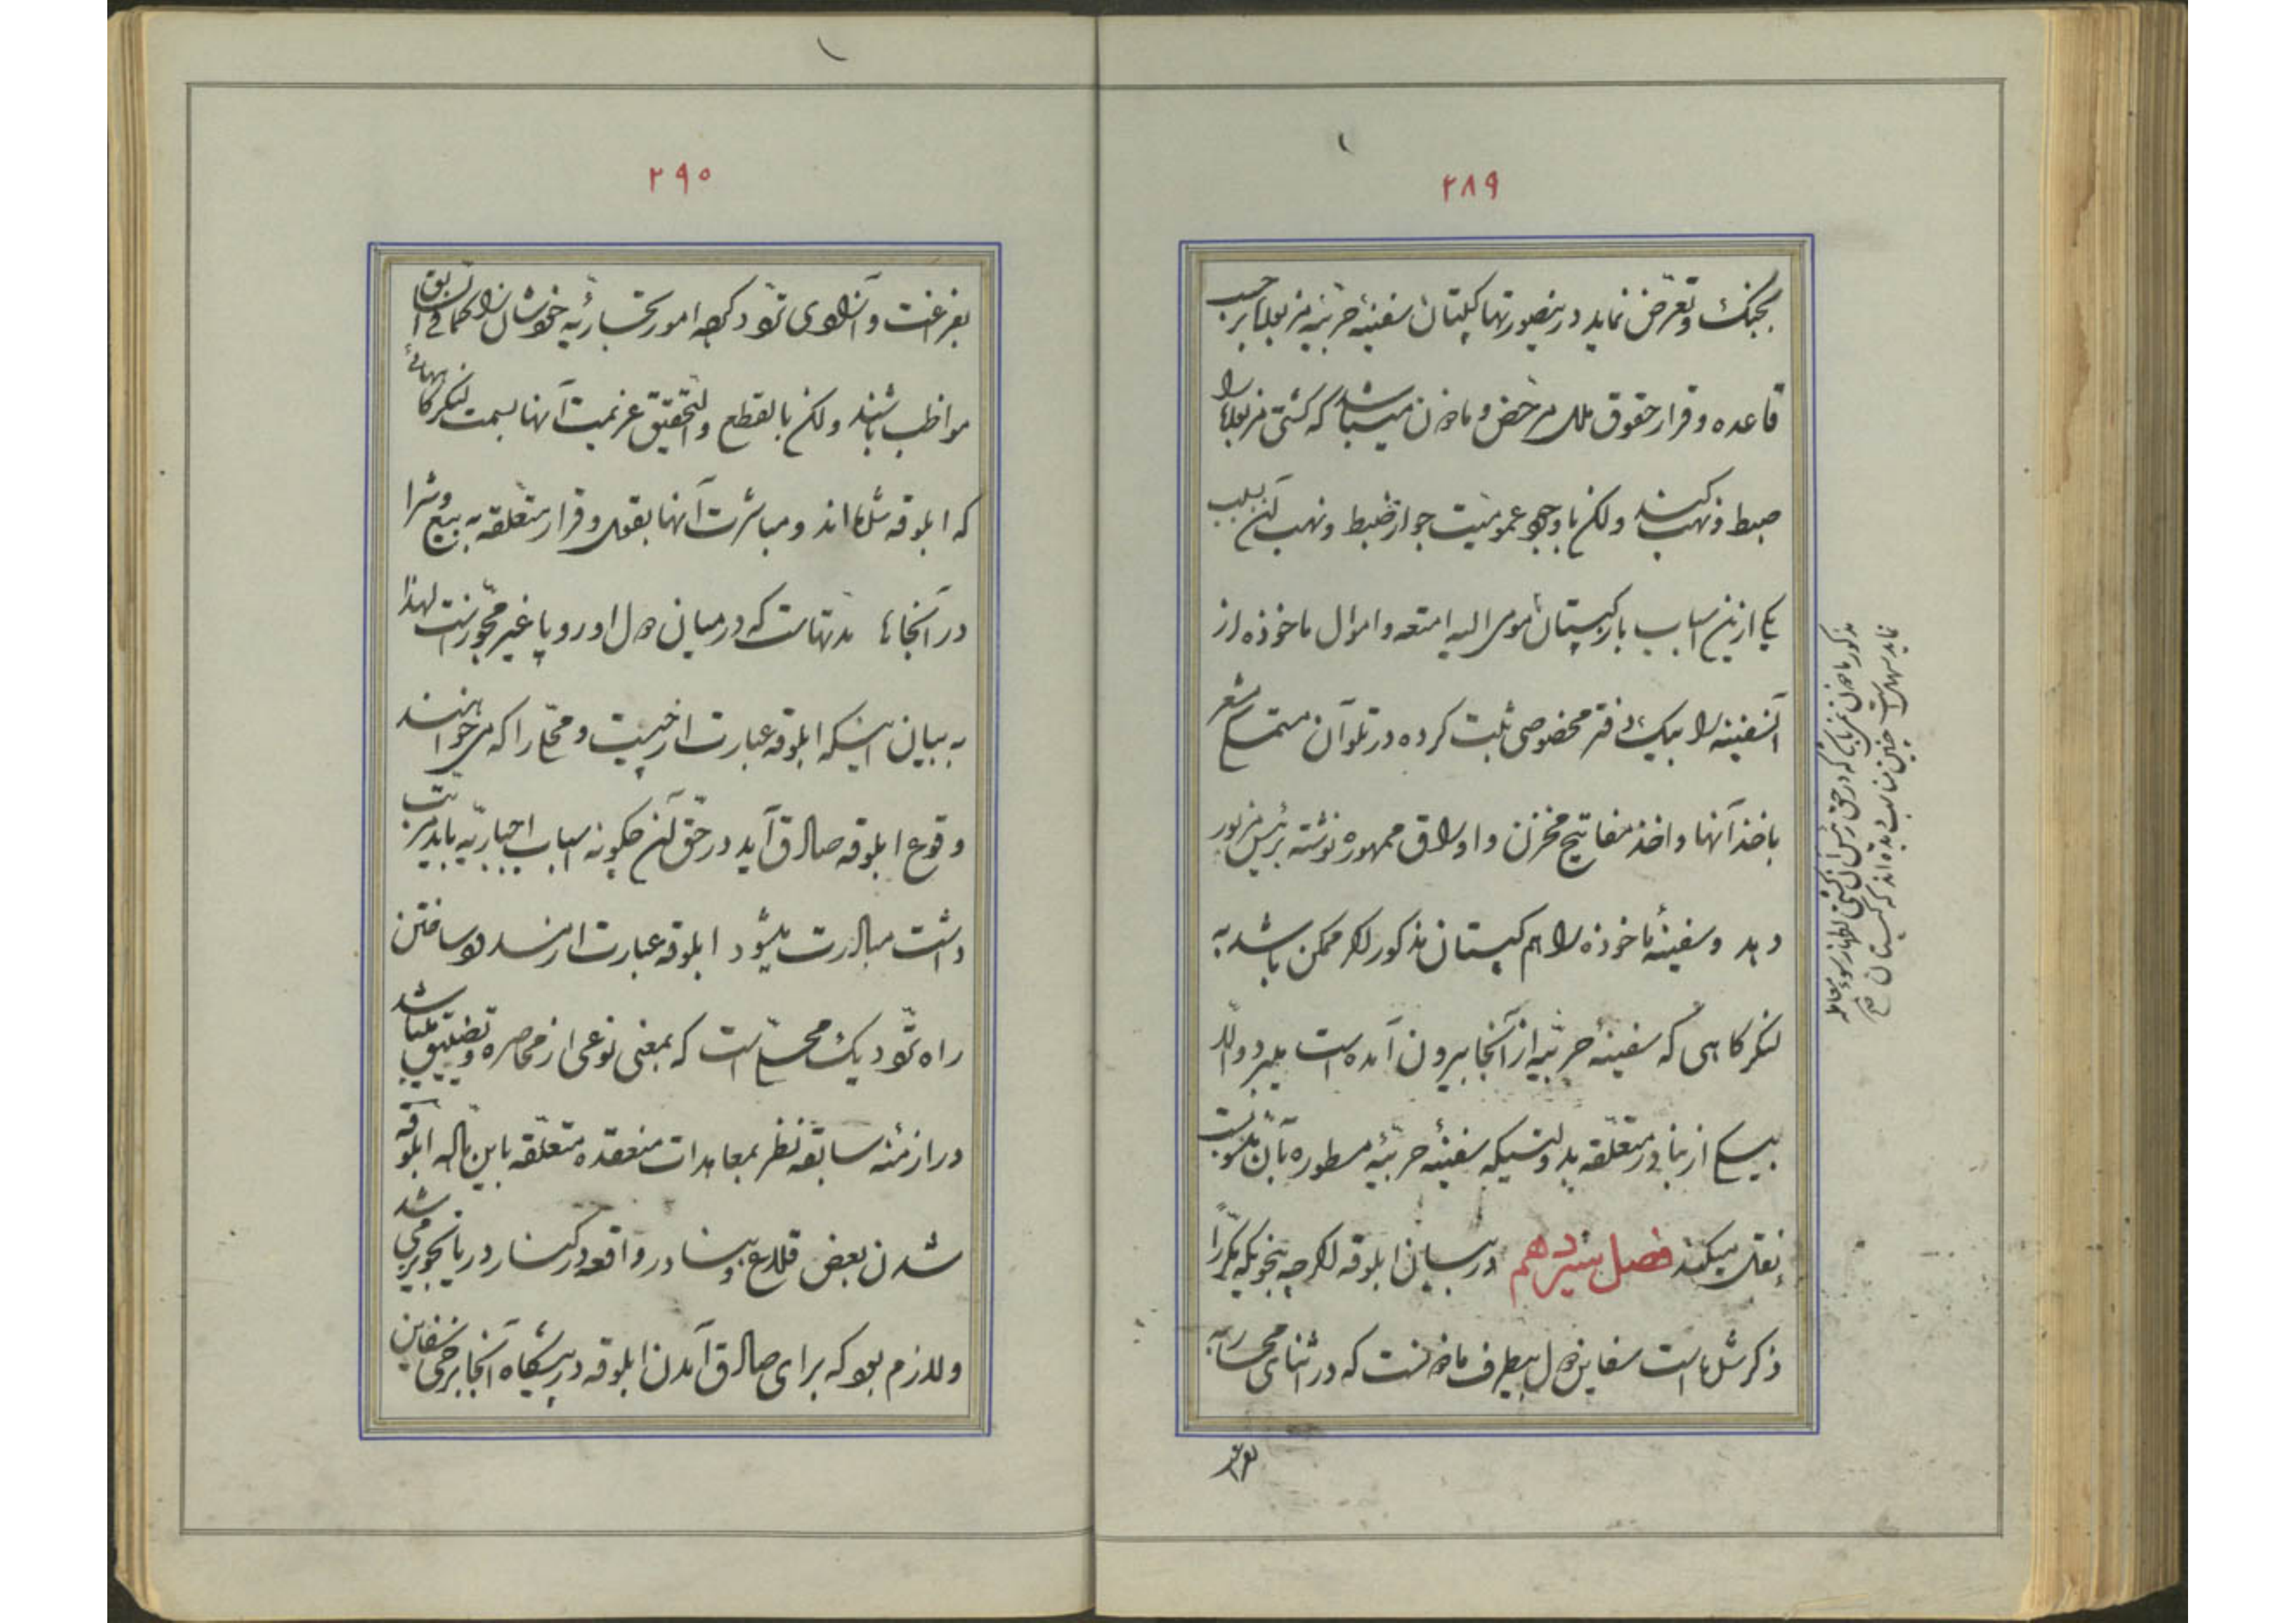 ۲۸۹
بجنک و تعرّض نماید درینصورتها کپتان سفینۀ حربیّه مزبوره بر حسب
قاعده و قرار حقوق ملل مرخّص و ماذون میباشد که کشتی مزبوره را
ضبط و نهب کند ولکن با وجود عمومیّت جواز ضبط و نهب آن بسبب
یکی ازین اسباب باز کپتان مومی الیه امتعه و اموال ماخوذه از
آنسفینه را بیک دفتر مخصوصی ثبت کرده در تلو آن متمسّکی مشعر
باخذ آنها و اخذ مفاتیح مخزن و اوراق ممهوره نوشته برئیس مزبور
دهد و سفینۀ ماخوذه را هم کپتان مذکور اگر ممکن باشد به
لنکرکاهی که سفینۀ حربیّه از آنجا بیرون آمده است میبرد و الّا
بیکی از بنادر متعلّقه بدولتیکه سفینۀ حربیّۀ مسطوره بآن منسوبست
نقل میکند فصل سیزدهم در بیان ابلوقه اکرچه بنحویکه مکرّراً
ذکر شده است سفاین دول بیطرف ماذونست که در اثنای محاربه
مذکور ماذون نمیباشد که در حق رئیس آن کشتی اظهار سوء معامله
نماید سهل است چنین مناسب دیده اند که کپتان
بفراغت
۲۹۰
بفراغت و آزادی تردّد کرده امور تجّاریّه خودشان را کما فی السّابق
مواظب باشند ولکن بالقطع و التّحقیق عزیمت آنها بسمت لنکرکاههائی
که ابلوقه شده اند و مباشرت آنها بقول و قرار متعلّقه به بیع و شرا
در آنجاها مدّتهاست که در میان دول اوروپا غیر مجوّز است لهذا
به بیان اینکه ابلوقه عبارت از چیست و محلّی را که میخواهند
وقوع ابلوقه صادق آید در حقّ آن چکونه اسباب اجباریّه باید مرتّب
داشت مبادرت میشود ابلوقه عبارت از مسدود ساختن
راه تردّد یک محلّی است که بمعنی نوعی از محاصره و تضییق میباشد
در ازمنۀ سابقه نظر بمعاهدات منعقده متعلّقه باین مادّه ابلوقه
شدن بعض قلاع و بنادر واقعه در کنار دریا تجویز می شد
و لازم بود که برای صادق آمدن ابلوقه در پیشکاه آنجا برخی سفاین